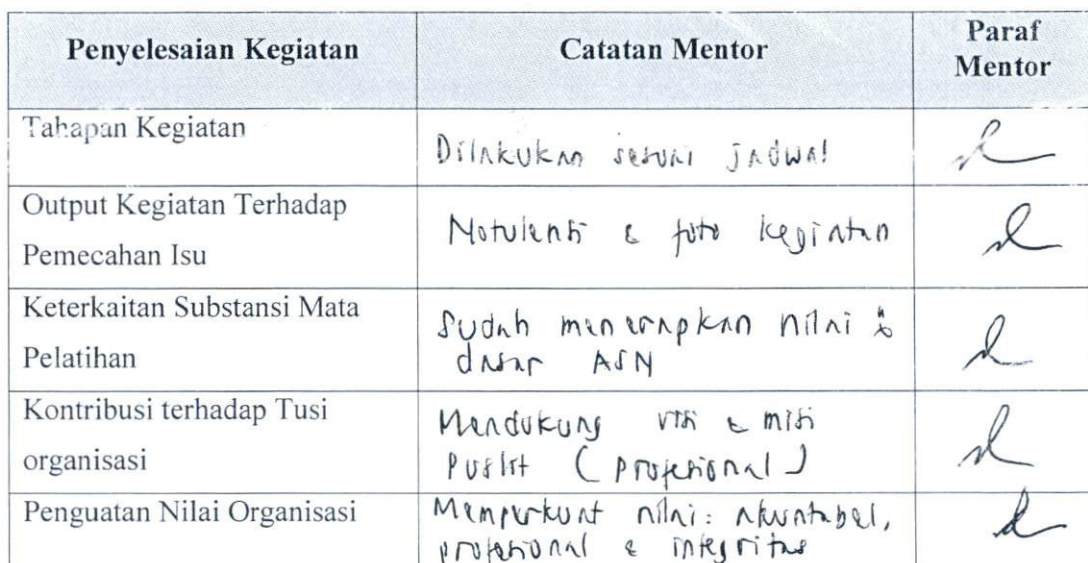 Penyelesaian Kegiatan
Catatan Mentor
Paraf
Mentor
Tahapan Kegiatan
Dilakukan sesuai jadwal
Output Kegiatan Terhadap
Pemecahan Isu
Notulensi & foto kegiatan
Keterkaitan Substansi Mata
Pelatihan
Sudah menerapkan nilai 2
dasar ASN
Kontribusi terhadap Tusi
organisasi
Mendukung visi & misi
Puslit (profesional)
Penguatan Nilai Organisasi
Memperkuat nilai: akuntabel,
profesional & integritas